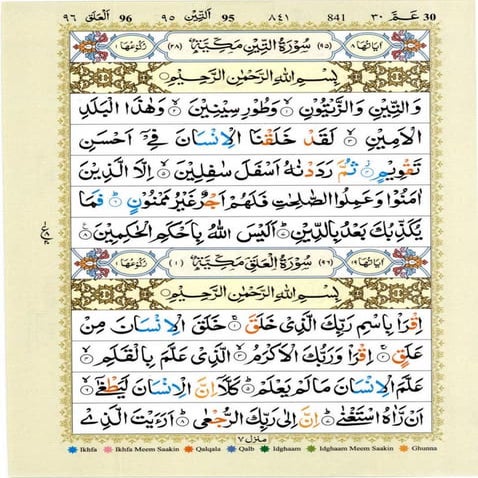 ٩٦ العلق 96 ٩٥ التين 95 ٨٤١ 841 ٣٠ عم 30
اٰیَاتُهَا ٨ (٩٥) سُوْرَةُ التِّيْنِ مَكِّيَّةٌ (٢٨) رُكُوْعُهَا ١
بِسْمِ اللهِ الرَّحْمٰنِ الرَّحِيْمِ
وَالتِّيْنِ وَالزَّيْتُوْنِ ۙ۱ وَطُوْرِ سِيْنِيْنَ ۙ۲ وَهٰذَا الْبَلَدِ
الْاَمِيْنِ ۙ۳ لَقَدْ خَلَقْنَا الْاِنْسَانَ فِيْۤ اَحْسَنِ
تَقْوِيْمٍ ۫۴ ثُمَّ رَدَدْنٰهُ اَسْفَلَ سٰفِلِيْنَ ۙ۵ اِلَّا الَّذِيْنَ
اٰمَنُوْا وَعَمِلُوا الصّٰلِحٰتِ فَلَهُمْ اَجْرٌ غَيْرُ مَمْنُوْنٍ ؕ۶ فَمَا
يُكَذِّبُكَ بَعْدُ بِالدِّيْنِ ؕ۷ اَلَيْسَ اللهُ بِاَحْكَمِ الْحٰكِمِيْنَ ۸
اٰیَاتُهَا ١٩ (٩٦) سُوْرَةُ الْعَلَقِ مَكِّيَّةٌ (١) رُكُوْعُهَا ١
بِسْمِ اللهِ الرَّحْمٰنِ الرَّحِيْمِ
اِقْرَاْ بِاسْمِ رَبِّكَ الَّذِيْ خَلَقَ ۚ۱ خَلَقَ الْاِنْسَانَ مِنْ
عَلَقٍ ۚ۲ اِقْرَاْ وَرَبُّكَ الْاَكْرَمُ ۙ۳ الَّذِيْ عَلَّمَ بِالْقَلَمِ ۙ۴
عَلَّمَ الْاِنْسَانَ مَا لَمْ يَعْلَمْ ؕ۵ كَلَّاۤ اِنَّ الْاِنْسَانَ لَيَطْغٰۤى ۙ۶
اَنْ رَّاٰهُ اسْتَغْنٰى ؕ۷ اِنَّ اِلٰى رَبِّكَ الرُّجْعٰى ؕ۸ اَرَءَيْتَ الَّذِيْ
منزل ٧
Ikhfa Ikhfa Meem Saakin Qalqala Qalb Idghaam Idghaam Meem Saakin Ghunna